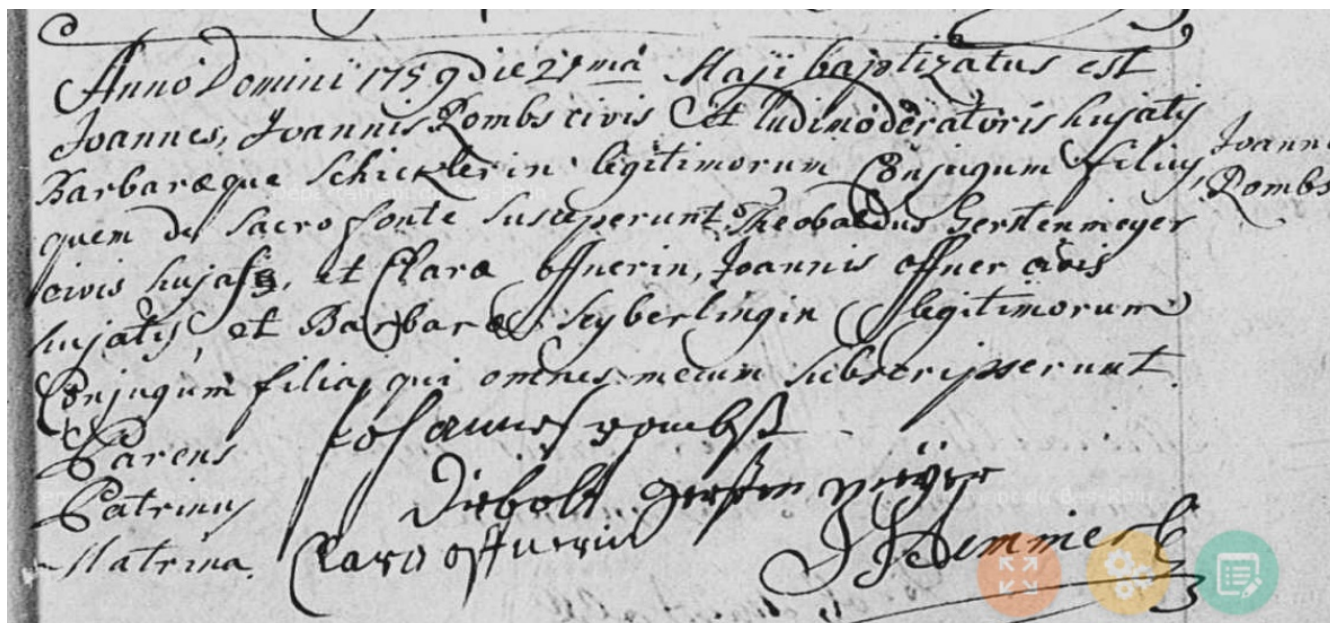 Anno Domini 1759 die 21 ma Maji baptizatus est
Joannes, Joannis Rombs civis et ludimoderatoris hujatis
Barbaræque Schicklerin legitimorum Conjugum filius,
quem de Sacro fonte susceperunt Theobaldus Gerstenmeyer
civis hujatis, et Clara offnerin, Joannis offner civis
hujatis, et Barbaræ Seyberlingin legitimorum
Conjugum filia, qui omnes mecum subscripserunt.
Joann
Rombs
Parens Johannes rombs
Patrinus Diebolt gersten meÿer
Matrina. Clara offnerin